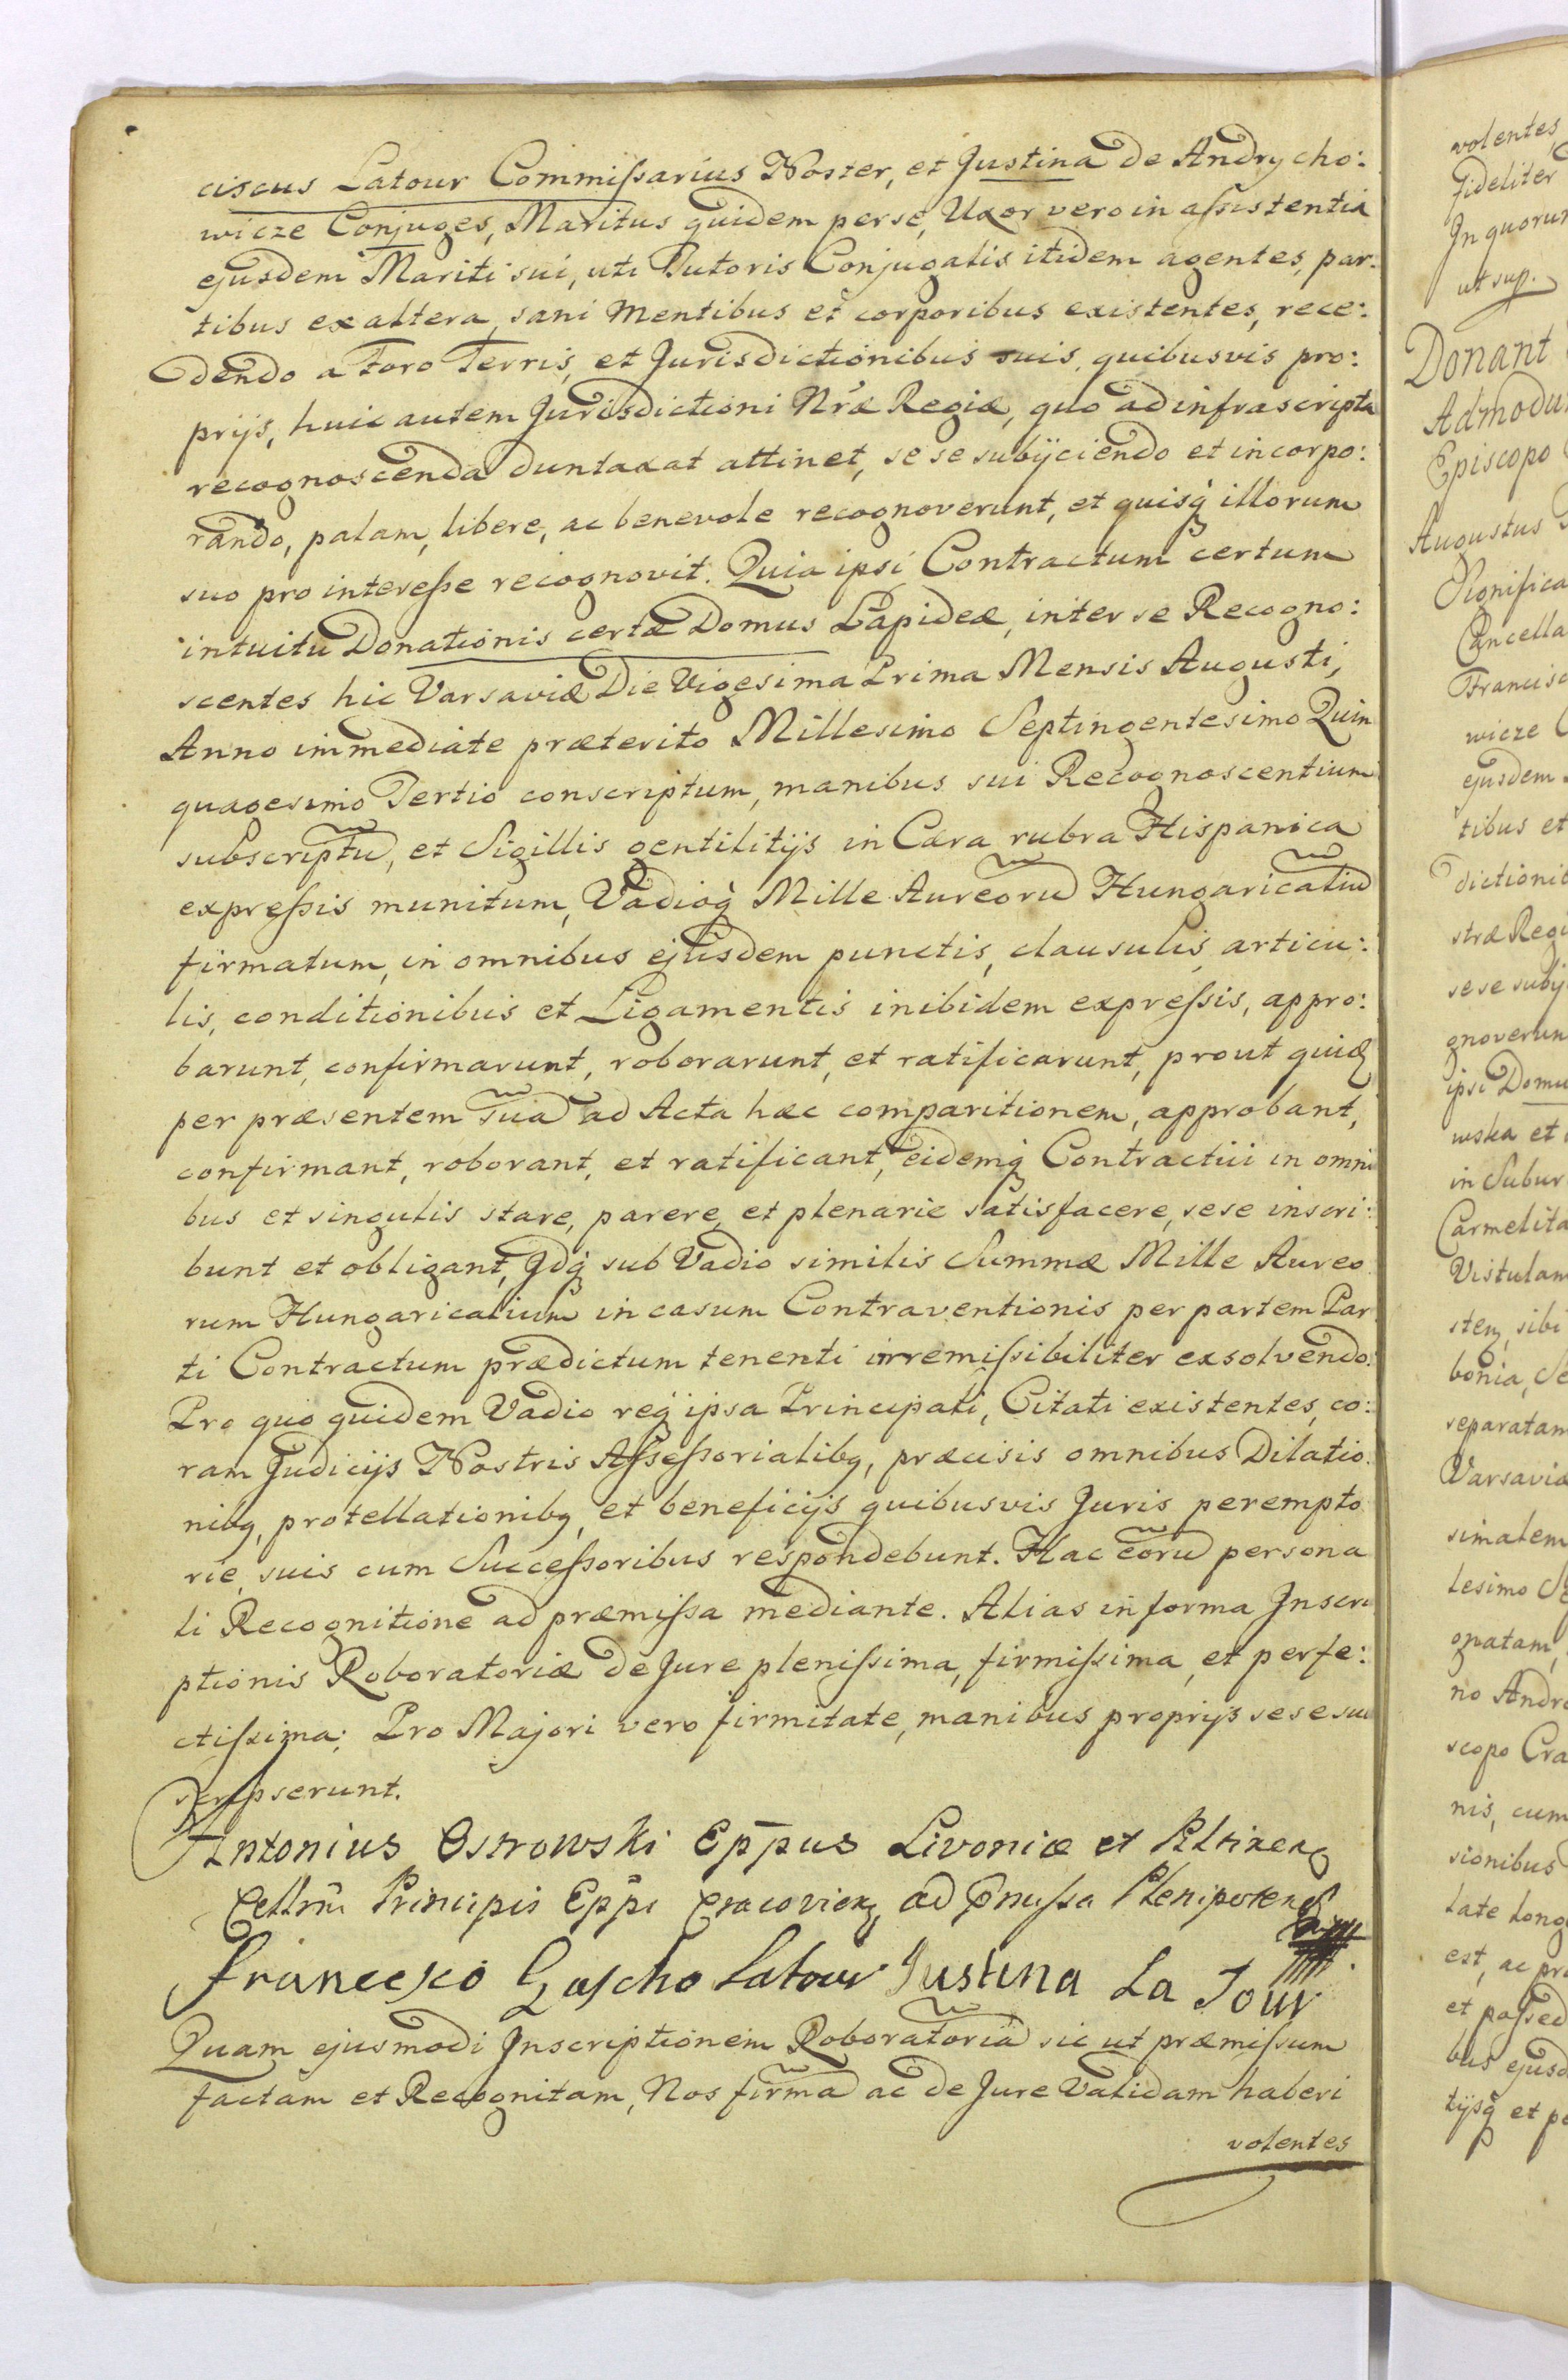 ciscus Latour Commissarius Noster, et Justina de Andrycho:
wicze Conjuges, Maritus quidem per se, Uxor vero in assistentia
ejusdem Mariti sui, uti Tutoris Conjugalis itidem agentes, par:
tibus ex altera, sani mentibus et corporibus existentes, rece:
dendo a Foro Terris, et Jurisdictionibus suis, quibusvis pro:
prijs, huic autem Jurisdictioni Nr̃æ Regiæ, quo ad infrascripta
recognoscenda duntaxat attinet, se se subijciendo et incorpo:
rando, palam, libere, ac benevole recognoverunt, et quisq̀ illorum
suo pro interesse recognovit. Quia ipsi Contractum certum
intuitu Donationis certæ Domus Lapideæ, inter se Recogno:
scentes hic Varsaviæ Die Vigesima Prima Mensis Augusti,
Anno immediate præterito Millesimo Septingentesimo Quin
quagesimo Tertio conscriptum, manibus sui Recognoscentium
subscriptũ, et Sigillis gentilitijs in Cæra rubra Hispanica
expressis munitum, Vadioq̀ Mille Aureorũ Hungaricaliũ
firmatum, in omnibus ejusdem punctis, clausulis, articu:
lis, conditionibus et Ligamentis inibidem expressis, appro:
barunt, confirmarunt, roborarunt, et ratificarunt, prout quidẽ
per præsentem suã ad Acta hæc comparitionem, approbant,
confirmant, roborant, et ratificant, eidemq̀ Contractui in omni
bus et singulis stare, parere, et plenarie satisfacere, sese inscri:
bunt et obligant, Idq̀ sub Vadio similis Summæ Mille Aureo
rum Hungaricalium in casum Contraventionis per partem Par
ti Contractum prædictum tenenti irremissibiliter exsolvendo:
Pro quo quidem Vadio req̀ ipsa Principali, Citati existentes, co:
ram Judicijs Nostris Assessorialibq, præcisis omnibus Dilatio:
nibq, protellationibq, et beneficijs quibusvis Juris perempto
rie, suis cum Successoribus respondebunt. Hac eorũ persona
li Recognitione ad præmissa mediante. Alias in forma Inscri
ptionis Roboratoriæ de Jure plenissima, firmissima, et perfe:
ctissima; Pro Majori vero firmitate, manibus proprijs sese sub
scripserunt.
Antonius Ostrowski Epp̄us Livoniæ et Piltinen
Cellsmi Principis Epp̄i Cracovien, ad Pmissa Plenipoten
Francesco Gascho Latour Justina La Tour
Quam ejusmodi Inscriptionem Roboratoriã sic ut præmissum
factam et Recognitam, Nos firmã ac de Jure Validam haberi
volentes
volentes
fideliter
In quorum
ut sup.
Donant
Admodum
Episcopo
Augustus
Significa
Cancella
Francisc
wicze
ejusdem
tibus et
dictionib
stræ Regi
se se subij
gnoverun
ipsi Domu
wska et
in Subur
Carmelita
Vistulam
sten, sibi
bonia, Se
separatam
Varsaviæ
simalem
lesimo Se
gnatam,
no Andre
scopo Cra
nis, cum
sionibus
late long
est, ac pr
et possed
bus ejusd
tijsq̀ et pe